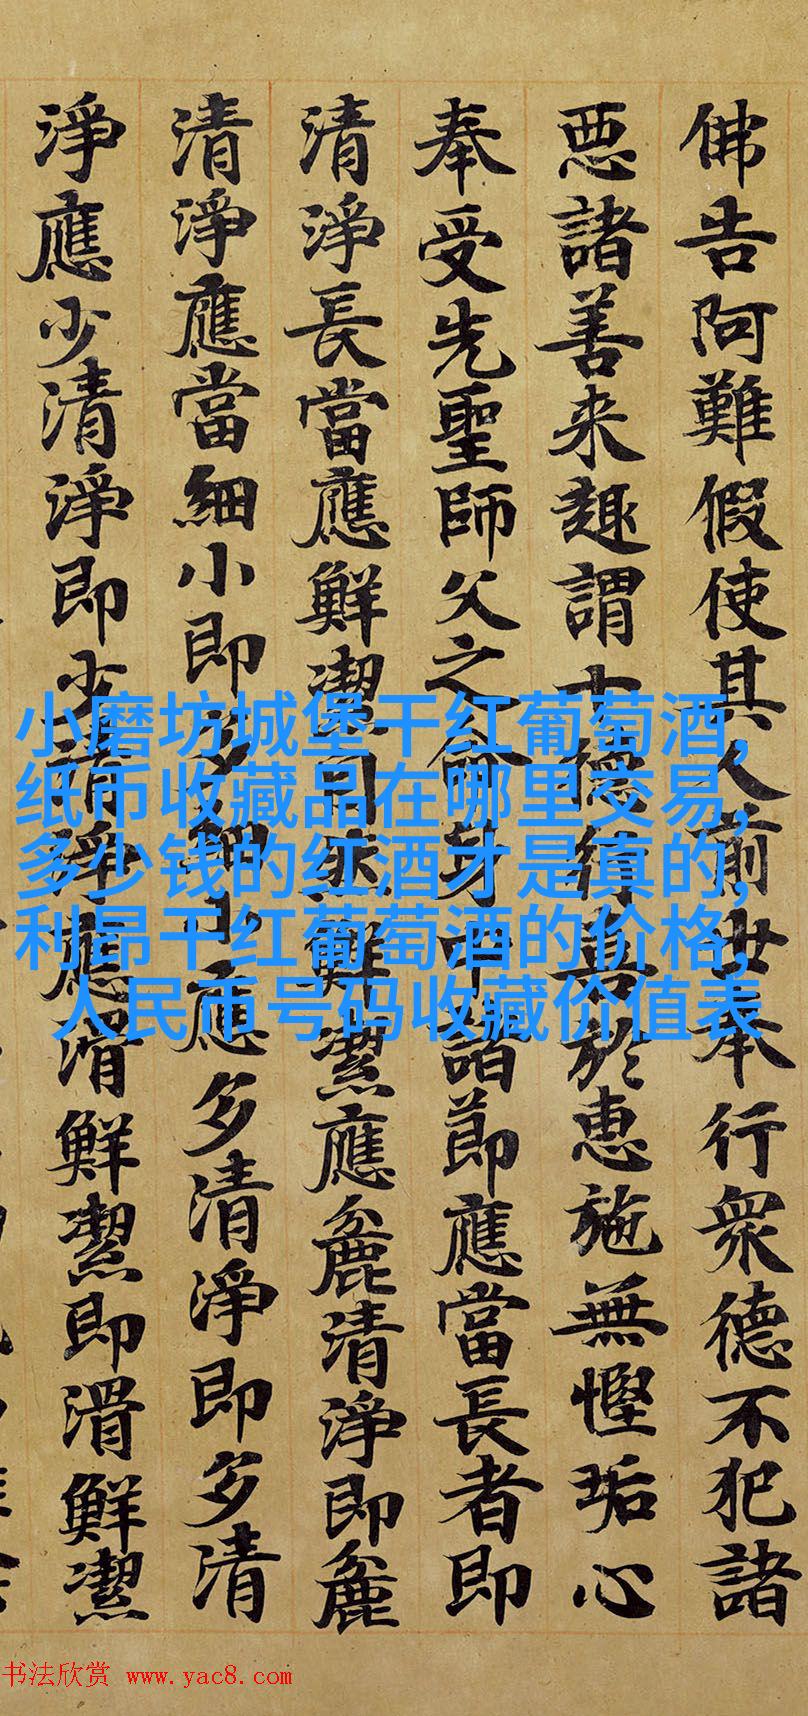 佛告阿難假使其人前世奉行眾德不犯諸
惡諸善来趣謂德具於惠施無慳垢心
奉受先聖師父之命身中諸節應當長者即
清淨長當應鮮潔自然鮮潔應麁清淨即麁
清淨應當細小即多細小應多清淨即多清
淨應少清淨即少清淨應滑鮮潔即滑鮮潔
小磨坊城堡干红葡萄酒,
纸币收藏品在哪里交易,
多少钱的红酒才是真的,
利昂干红葡萄酒的价格,
人民币号码收藏价值表
书法欣赏 www.yac8.com